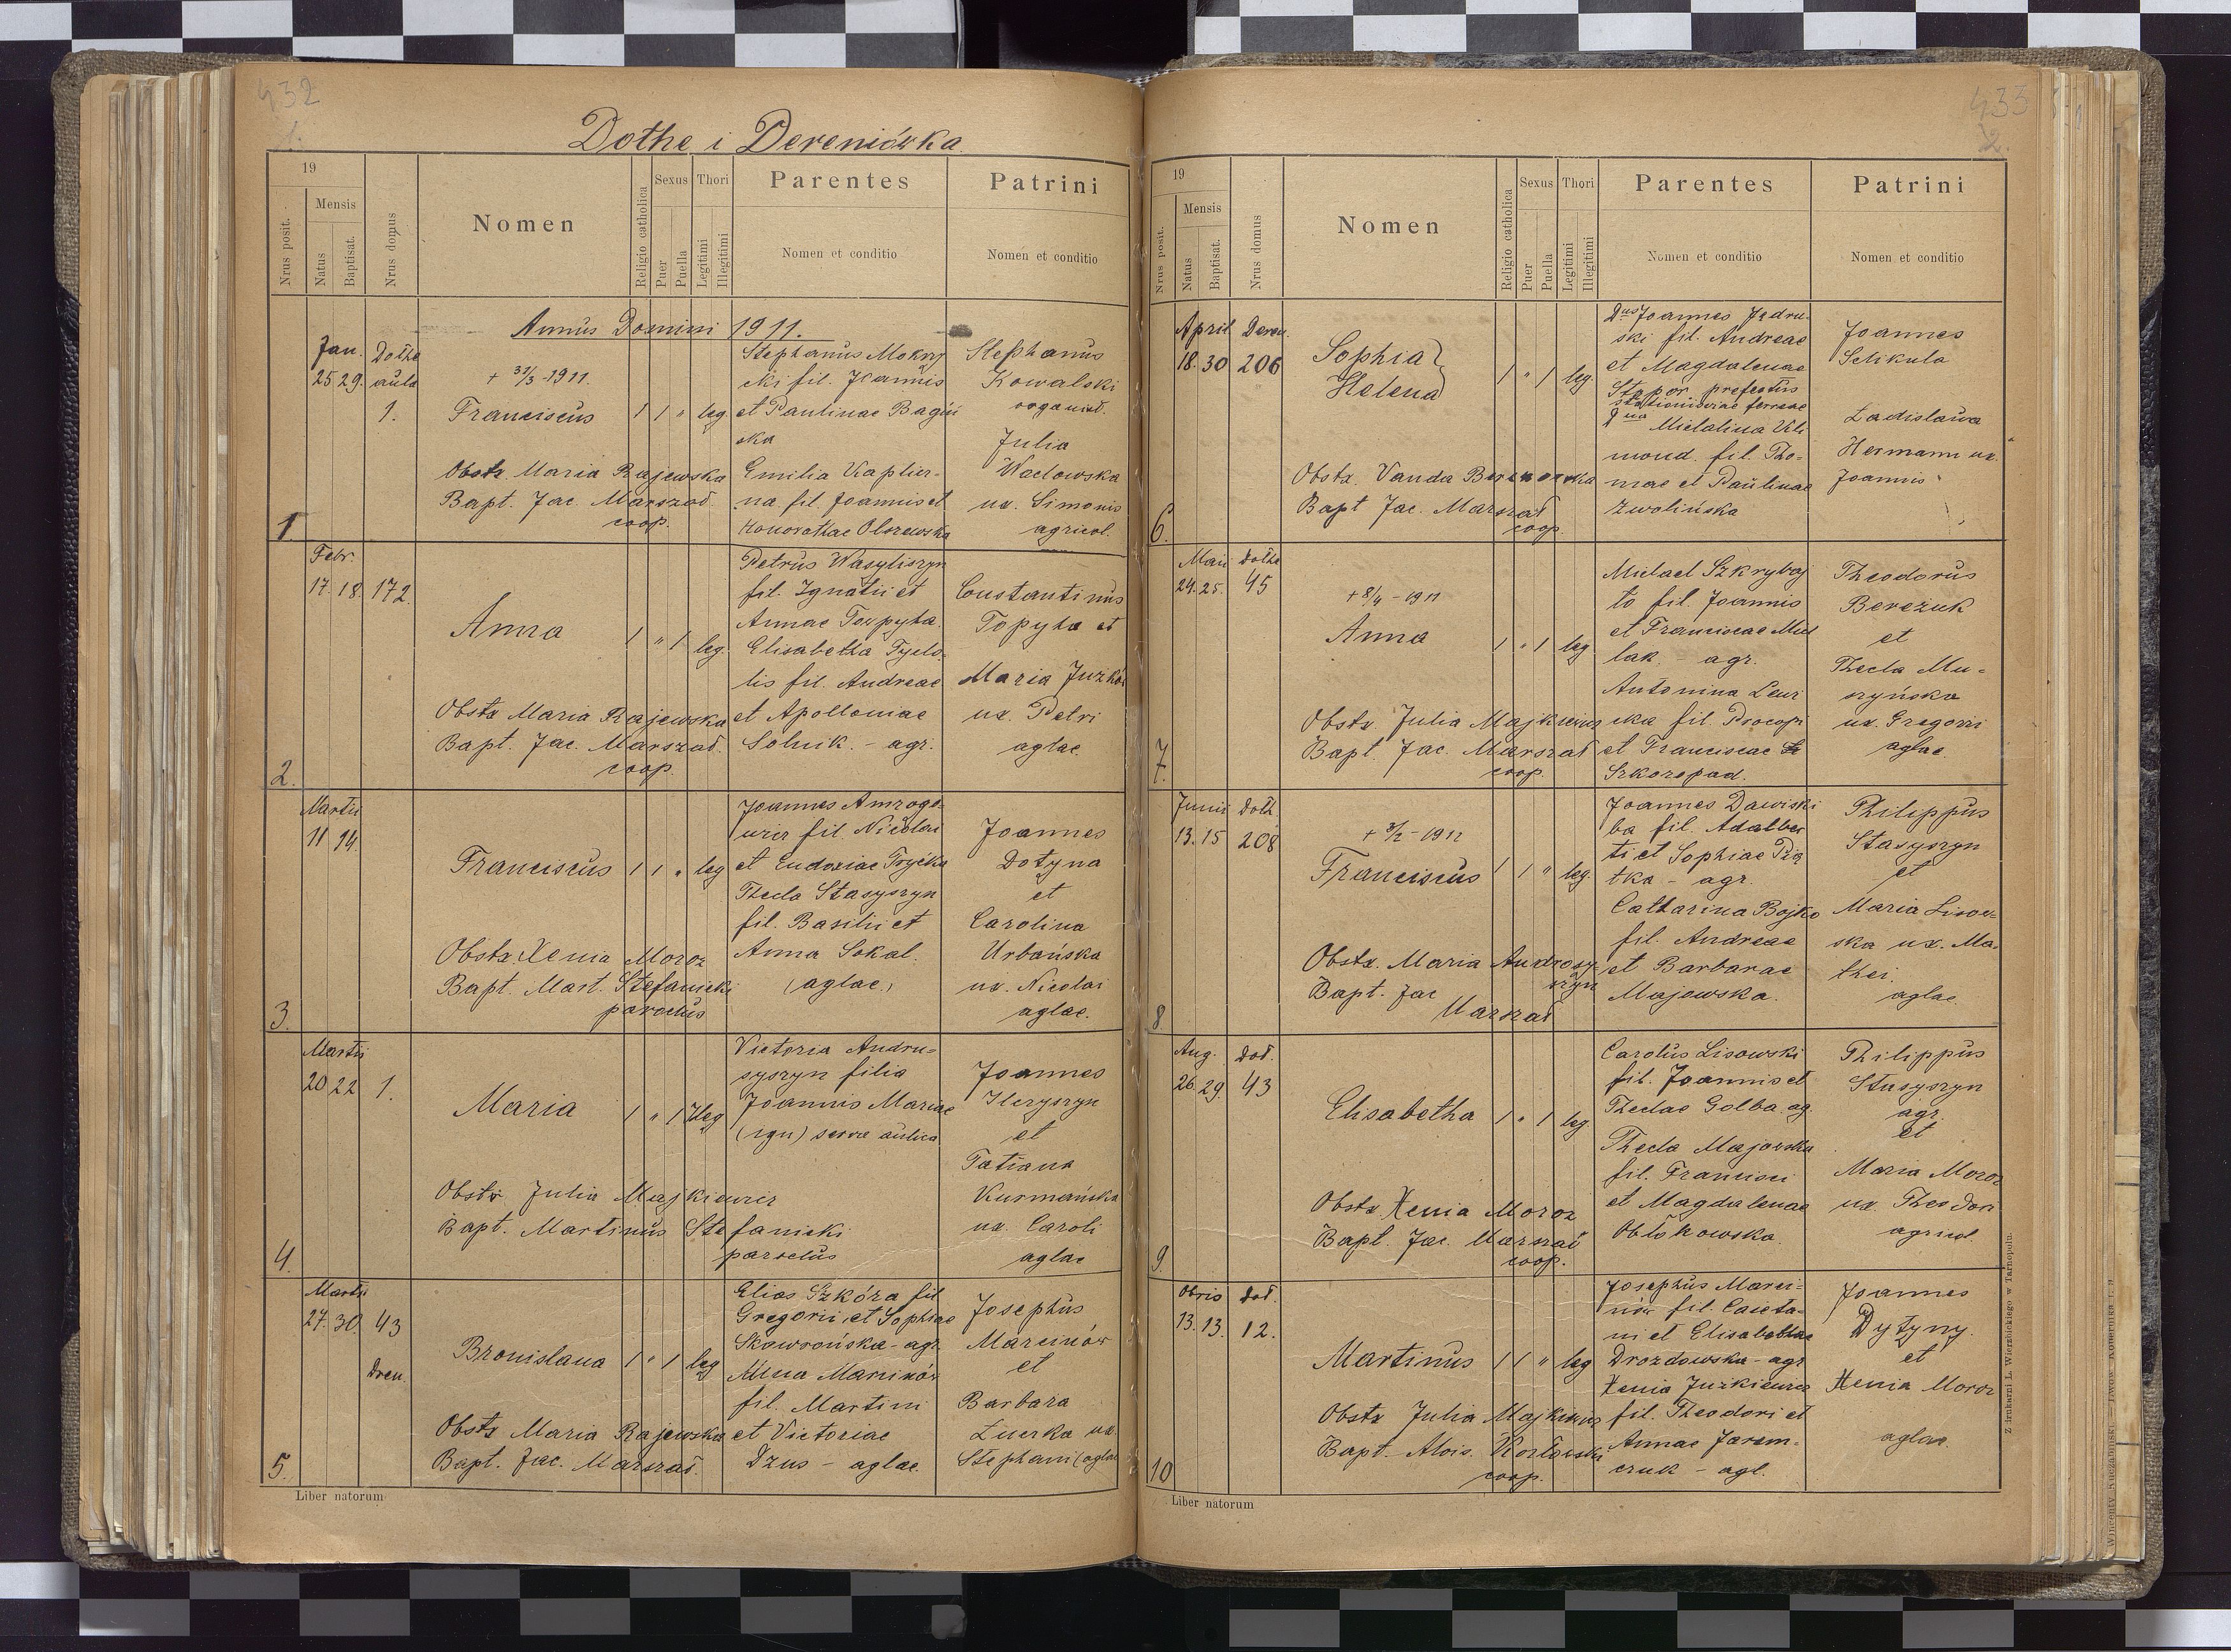 432
1.
Dothe i Dereniówka
19
Nrus posit.
Mensis
Natus
Baptisat.
Nrus domus
Nomen
Religio catholica
Sexus
Puer
Puella
Thori
Legitimi
Illegitimi
Parentes
Nomen et conditio
Patrini
Nomen et conditio
Annus Domini 1911.
1
Jan.
25 29.
Dothe
aula
1.
+ 31/3 - 1911.
Franciscus
1 1 " leg
Obstr. Maria Rajewska
Bapt. Jac. Marszał
coop.
Stephanus Mokrzy
cki fil. Joannis
et Paulinae Bagiń
ska
Emilia Kaplier-
na fil. Joannis et
Honorathae Olszewska
Stephanus
Kowalski
organist.
Julia
Wacłowska
ux. Simonis
agricol.
2.
Febr.
17. 18.
172.
Anna
1 " 1 leg.
Obstx Maria Rajewska
Bapt. Jac. Marszał.
coop.
Petrus Wasyliszyn
fil. Ignatii et
Annae Topyha.
Elisabetha
lis fil. Andreae
et Apolloniae
Solnik. - agr.
Constantinus
Topyha et
Maria Juzków
ux. Petri
aglae
3.
Martii
11 14.
Franciscus
1 1 " leg
Obstx. Xenia Moroz
Bapt. Mart. Stefanicki
parochus
Joannes
wicz fil. Nicolai
et Eudoxiae
Thecla Stasyszyn
fil. Basilii et
Anna Sokal.
(aglae)
Joannes
Dotyna
et
Carolina
Urbańska
ux. Nicolai
aglae.
4.
Martii
20 22
1.
Maria
1 " 1 Illeg
Obstx Julia Majkiewicz
Bapt. Martinus Stefanicki
parochus
Victoria Andru-
syszyn filia
Joannis Mariae
(ign) serva aulica
Joannes
Ilczyszyn
et
Tatiana
Kurmańska
ux. Caroli
aglae
5.
Martii
27. 30.
43
Dren.
Bronislaua
1 " 1 leg
Obstx Maria Rajewska
Bapt. Jac. Marszał.
Elias Szkóra fil
Gregorii et Sophiae
Skowrońska - agr
Anna Marcinów
fil. Martini
et Victoriae
Dzus - aglae.
Josephus
Marcinów
et
Barbara
Żuerka ux.
Stephani (aglae
Liber natorum
433
2.
19
Nrus posit.
Mensis
Natus
Baptisat.
Nrus domus
Nomen
Religio catholica
Sexus
Puer
Puella
Thori
Legitimi
Illegitimi
Parentes
Nomen et conditio
Patrini
Nomen et conditio
6.
April
18. 30
Deren.
206
Sophia
Helena
1 " 1 leg.
Obstx. Vanda
Bapt Jac. Marszał
coop.
Dnus Joannes Jędru-
ski fil. Andreae
et Magdalenae
Stapór prefectus
stationis viae ferreae
mond. fil. Tho-
mae et Paulinae
Zwolińska
Joannes
Sehkula
Ladislawa
Hermann ux.
Joannis
7.
Maii
24. 25.
Dothe
45
+ 8/4 - 1911
Anna
1 " 1 leg
Obstx. Julia Majkiewicz
Bapt. Jac. Marszał
coop.
Michael Szkryboj
to fil. Joannis
et Franciscae Mich
lak. - agr.
Antonina
cka fil. Procopi
et Franciscae
Szkoropad.
Theodorus
Bereżuk
et
Thecla Mu-
szyńska
ux. Gregorii
aglae
8
Junii
13. 15
Doth.
208
+ 3/2 - 1912
Franciscus
1 1 " leg.
Obstx. Maria Androsy-
szyn
Bapt. Jac
Marszał
Joannes Dawiski
ba fil. Adalber
ti et Sophiae Pią
tka - agr.
Catharina Bojko
fil. Andreae
et Barbarae
Majewska.
Philippus
Stasyszyn
et
Maria Lisow-
ska ux. Ma-
thei.
aglae.
9.
Aug.
26. 29.
Doł.
43
Elisabetha
1 " 1 leg
Obstx Xenia Moroz
Bapt. Jac. Marszał
coop.
Carolus Lisowski
fil. Joannis et
Theclae Golba ag.
Thecla Majewska
fil. Francisci
et Magdalenae
Philippus
Stasyszyn
agr.
et
Maria Moroz
ux. Theodori
agricol.
10
Obris
13. 13.
Doł.
12.
Martinus
1 1 " leg
Obstx Julia Majkiewicz
Bapt. Alois. Kozłowski
coop.
Josephus Marci-
nów fil. Caieta-
ni et Elisabethae
Drozdowska - agr
Xenia Juzkiewicz
fil. Theodori et
Annae Jarem-
czuk - agl.
Joannes
Dytyny.
et
Xenia Moroz
aglae.
Liber natorum
Z drukarni L. Wierzbickiego w Tarnopolu.